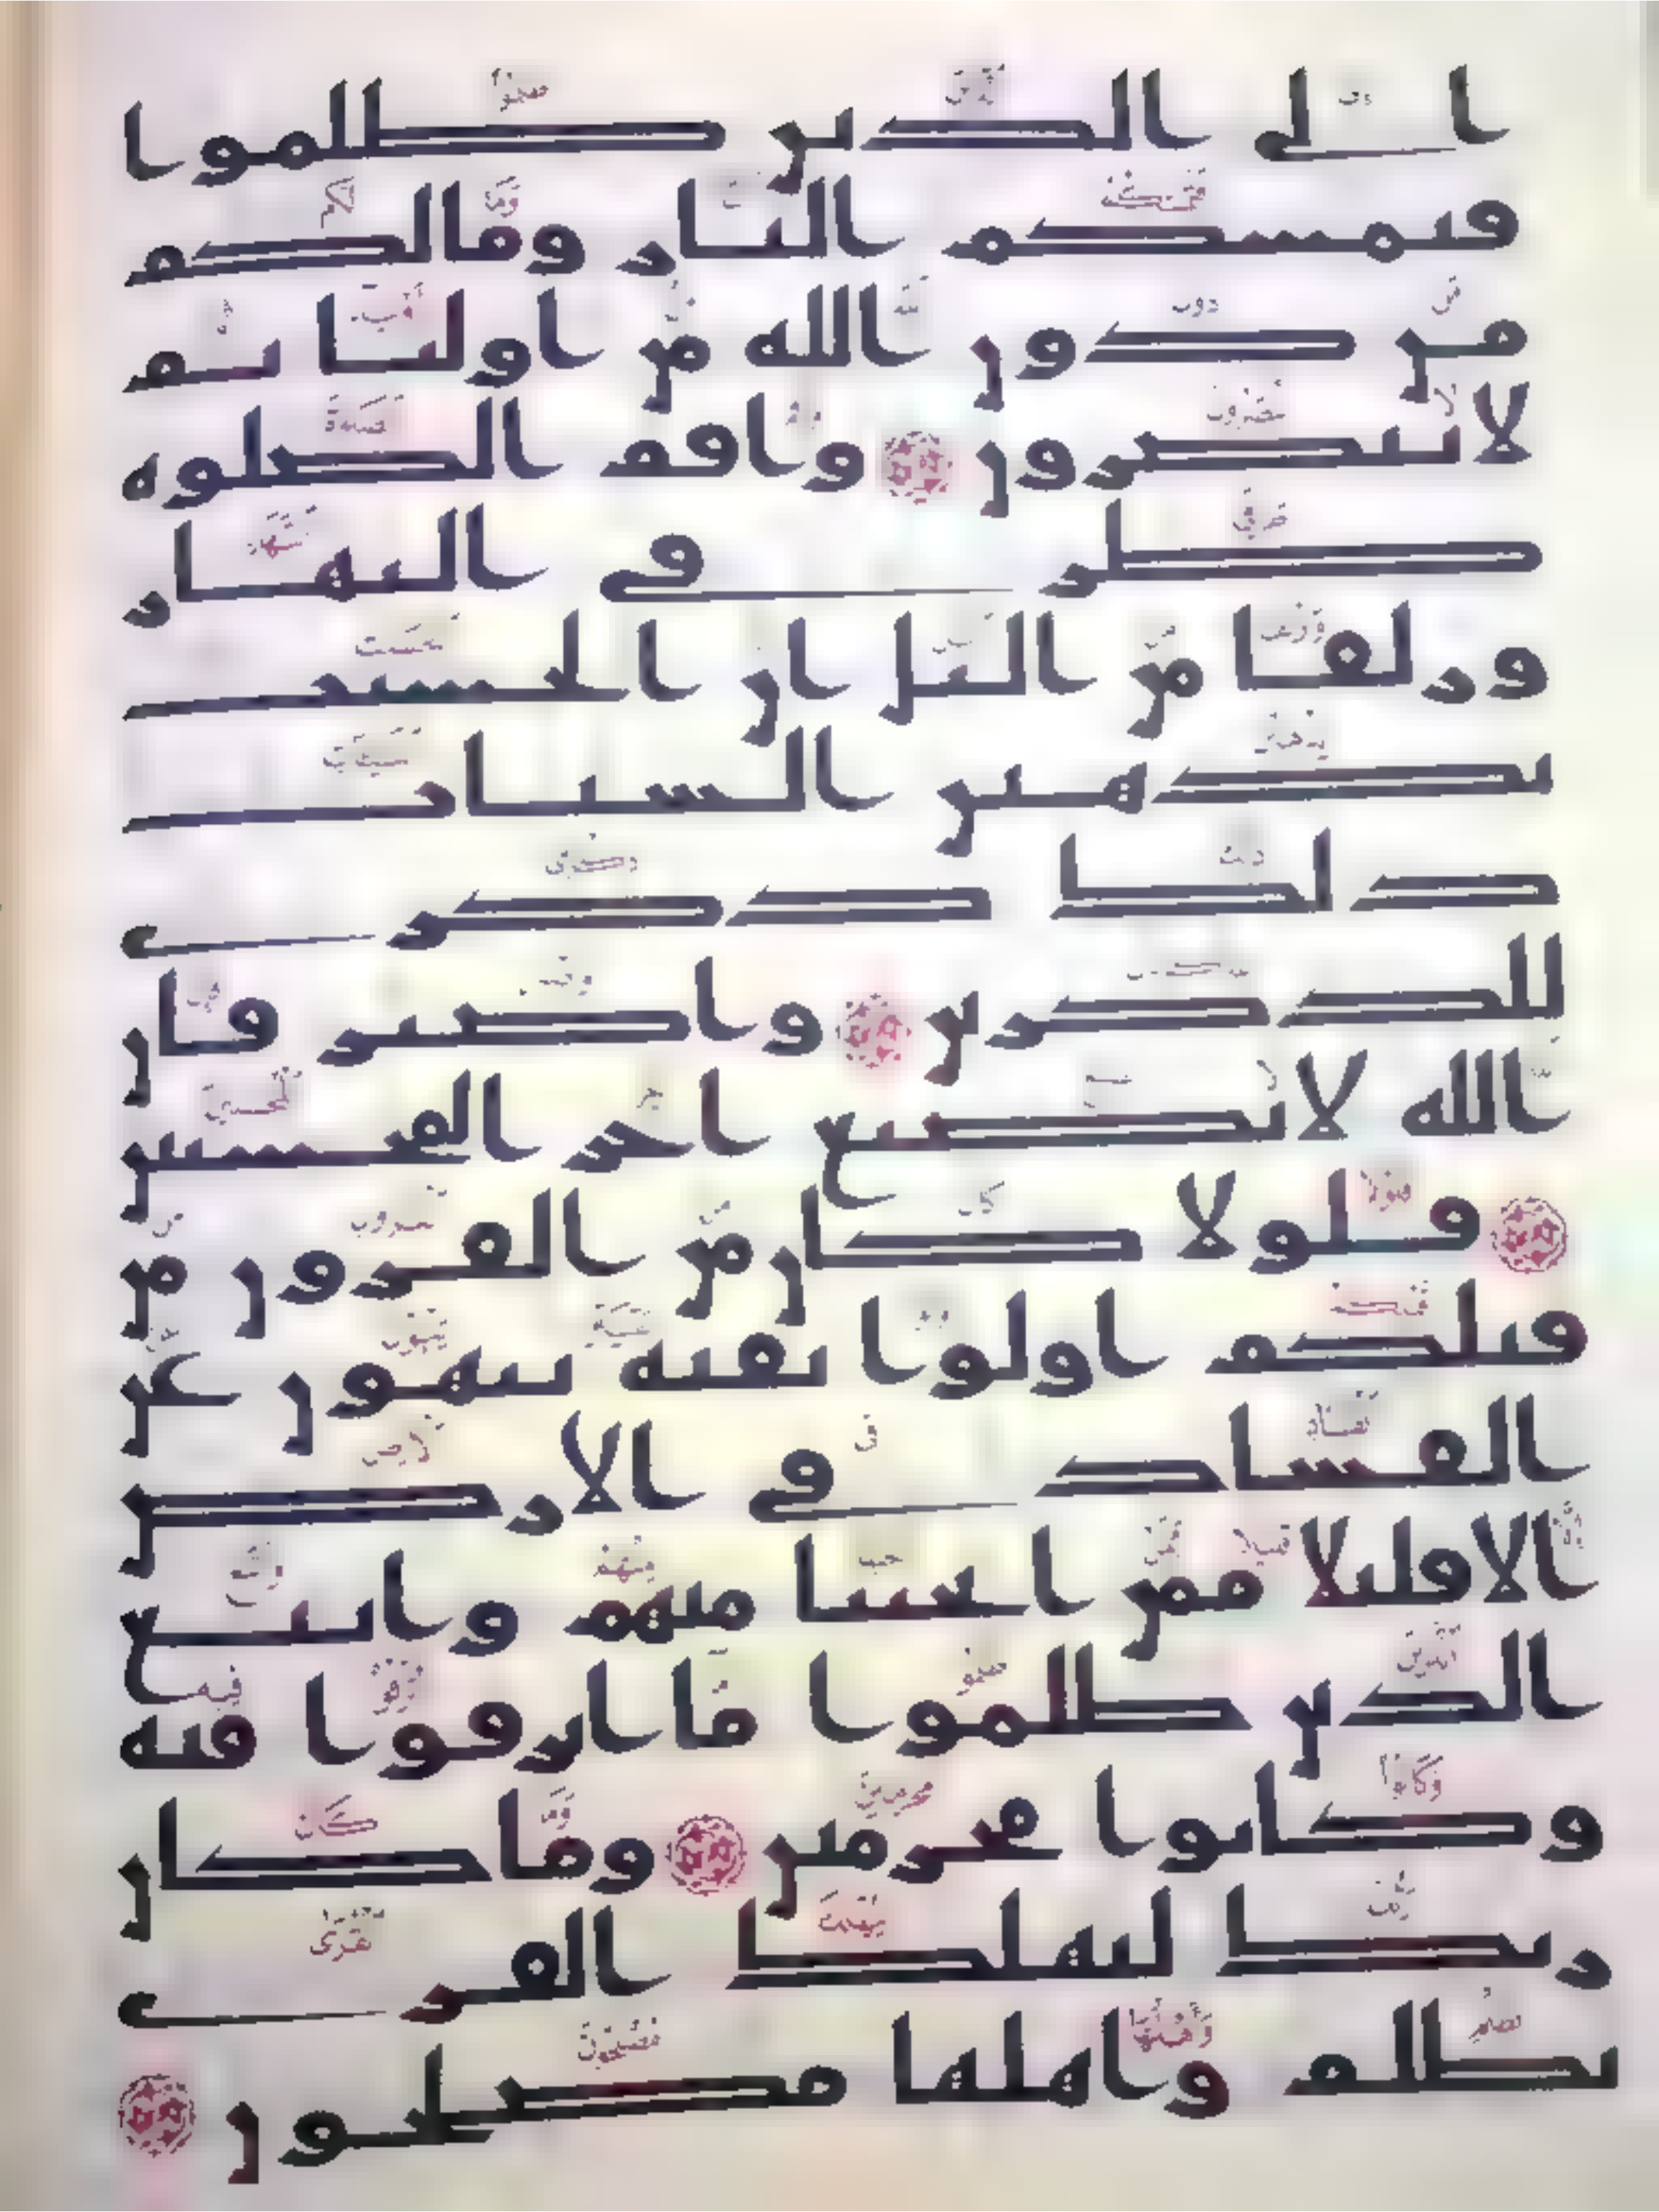 الى الذين ظلموا
فتمسكم النار وما لكم
من دون الله من اوليا ثم
لا تنصرون ۝ واقم الصلوه
طرفي النهار
وزلفا من اليل ان الحسنت
يذهبن السيات
ذلك ذكرى
للذكرين ۝ واصبر فان
الله لا يضيع اجر المحسنين
۝ فلولا كان من القرون من
قبلكم اولوا بقيه ينهون عن
الفساد في الارض
الا قليلا ممن انجينا منهم واتبع
الذين ظلموا ما اترفوا فيه
وكانوا مجرمين ۝ وما كان
ربك ليهلك القرى
بظلم واهلها مصلحون ۝